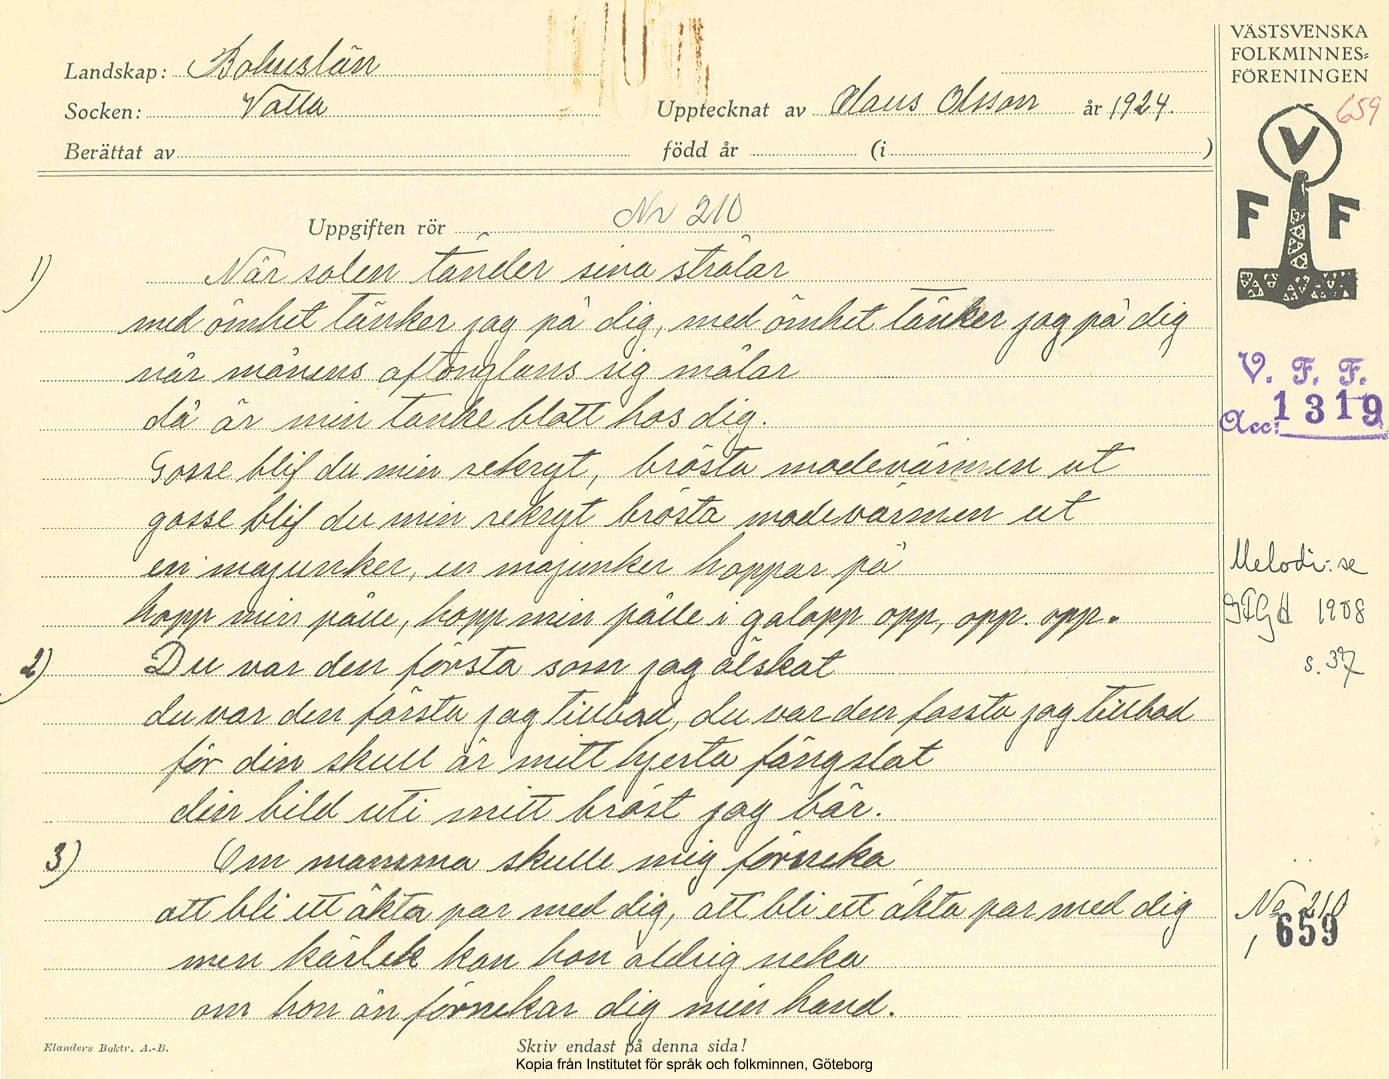 Landskap: Bohuslän
Socken: Valla
Upptecknat av Claus Olsson år 1924.
Berättat av
född år (i )
VÄSTSVENSKA
FOLKMINNES=
FÖRENINGEN
659
V
F F
V. F. F.
Acc: 1319
Uppgiften rör Nr 210
1) När solen tänder sina strålar
med ömhet tänker jag på dig, med ömhet tänker jag på dig
när månens aftonglans sig målar
då är min tanke blott hos dig.
Gosse blif du min rekryt, brösta modevärmen ut
gosse blif du min rekryt brösta modevärmen ut
en majunker, en majunker hoppar på
hopp min pålle, hopp min pålle i galopp opp, opp. opp.
2) Du var den första som jag älskat
du var den första jag tillbad, du var den första jag tillbad
för din skull är mitt hjerta fängslat
din bild uti mitt bröst jag bär.
3) Om mamma skulle mig förneka
att bli ett äkta par med dig, att bli ett äkta par med dig
men kärlek kan hon aldrig neka
om hon än förnekar dig min hand.
Melodi: se
1908
s. 37
No 210
659
1
Elanders Boktr. A.-B.
Skriv endast på denna sida!
Kopia från Institutet för språk och folkminnen, Göteborg